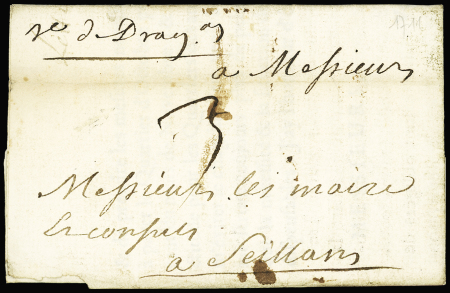 re d Drag.an
a Messieurs
3
Messieurs les maire
& consuls
a Seillans